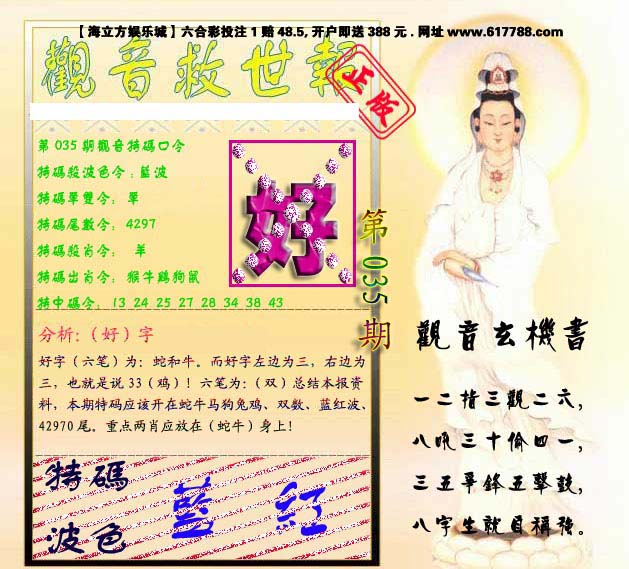 【海立方娱乐城】六合彩投注1赔48.5,开户即送388元.网址www.617788.com
觀音救世報
正版
第035期觀音特碼口令
特碼殺波色令:藍波
特碼單雙令: 單
特碼尾數令: 4297
特碼殺肖令: 羊
特碼出肖令: 猴牛鷄狗鼠
特中碼令: 13 24 25 27 28 34 38 43
好
第035期
分析:(好)字
好字(六笔)为:蛇和牛。而好字左边为三,右边为
三,也就是说33(鸡)!六笔为:(双)总结本报资
料,本期特码应该开在蛇牛马狗兔鸡、双数、蓝红波、
42970尾。重点两肖应放在(蛇牛)身上!
特碼
波色
藍 紅
觀音玄機書
一二指三觀二六,
八吼三十偷四一,
三五爭鋒五擊鼓,
八字生就自稱強。